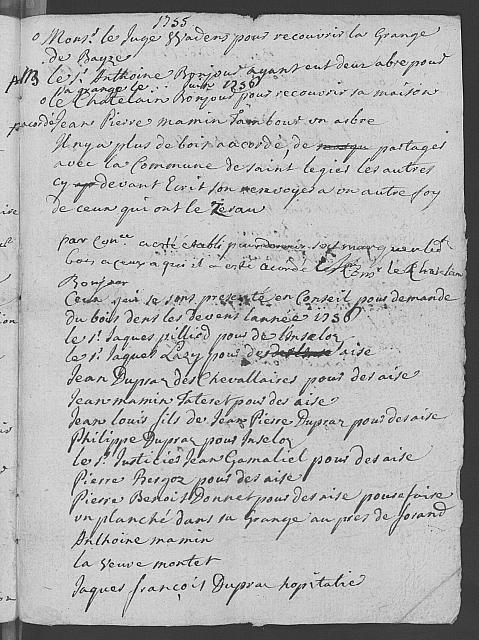 1735
o Mons.r le Juge Vadens pour recouvrir la Grange
de Bayze
le s.r Anthoine Bonjour ayant eut deux abre pour
sa grange le 1736
o le Chatelain Bonjour pour recouvrir sa maison
Jean Pierre mamin Tambour un arbre
Il ny a plus de bois accordé, de partages
avec la Commune de saint legies les autres
cy devant Ecrit son renvoyes a un autre foy
de ceux qui ont le
par Con.ce a esté établi pour marquer led.t
bois a ceux a qui il a esté acordé le Chastelain
Bonjour
Ceux qui se sont presenté en Conseil pour demande
du bois dens les Devens lannée 1736
le s.r Jaques pilliod pour de l'Inseloz
le s.r Jaques Lazy pour des aise
Jean Dupraz des Chevallaires pour des aise
Jean mamin Tateret pour des aise
Jean Louis fils de Jean Pierre Dupraz pour des aise
Philippe Dupraz pour Inseloz
le s.r Justicier Jean Gamaliel pour des aise
Pierre pour des aise
Pierre Benoit Donnet pour des aise pour se faire
un planché dans sa Grange au pres de forand
Anthoine mamin
la veuve montet
Jaques françois Dupraz hopitalie